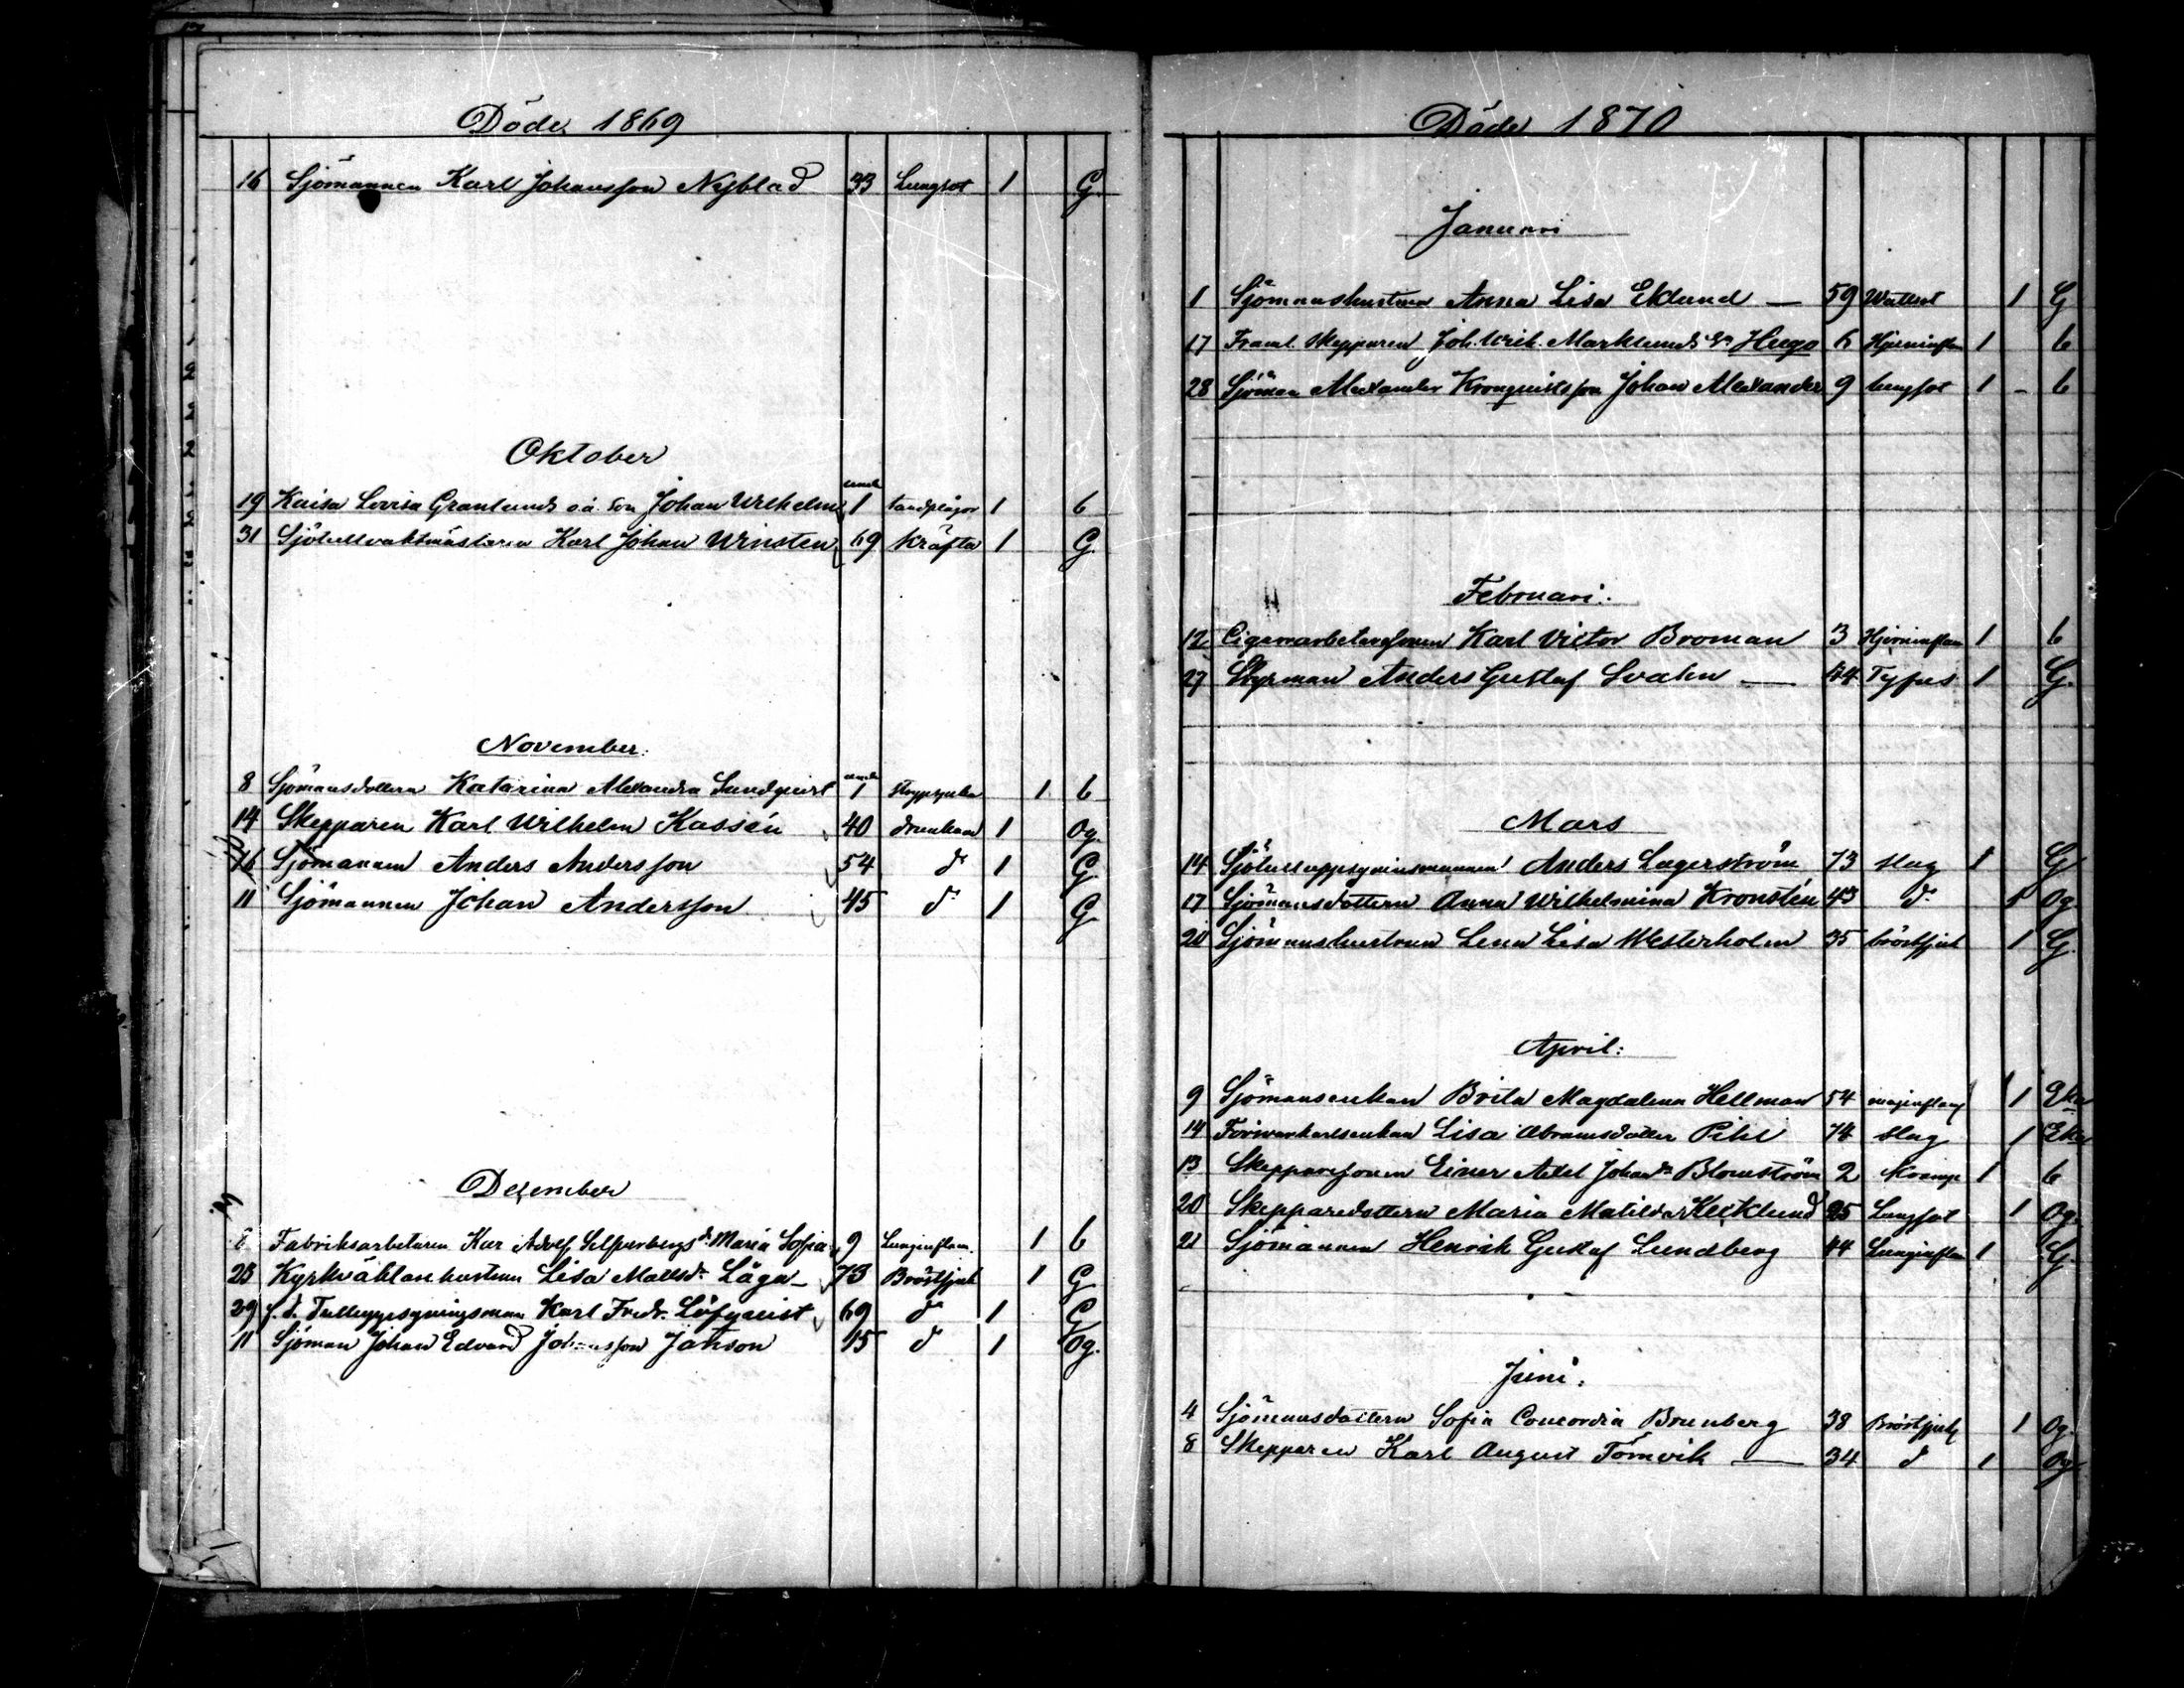 Döde 1869
16 Sjömannen Karl Johansson Nyblad 33 Lungsot 1 G.
Oktober
19 Kaisa Lovisa Granlunds o.ä. son Johan Wilhelm 1 tandplågor 1 b
31 Sjötullvaktmästaren Karl Johan Winsten 69 kräfta 1 G.
November:
8 Sjömansdottern Katarina Alexandra Lundqvist 1 1 b
14 Skepparen Karl Wilhelm Kassén 40 drunknad 1 Og.
16 Sjömannen Anders Andersson 54 d:o 1 G
11 Sjömannen Johan Andersson 45 d:o 1 G
December
Fabriksarbetaren Kar Adolf Silfverbergs d:r Maria Sofia 9 Lunginflam. 1 b
28 Kyrkväktarehustrun Lisa Mattsd:r Låga 73 Bröstsjuk 1 G
29 f.d. Tulluppsyningsman Karl Fredr. Löfqvist 69 d:o 1 G
11 Sjöman Johan Edvard Johansson Janson 15 d:o 1 Og.
Döde 1870
Januari
1 Sjömanshustrun Anna Lisa Eklund — 59 Wattsot 1 G
17 Framl. skepparen Joh. Urik. Marklunds Sn Hugo 6 Hjerninflam 1 b
28 Sjöman Alexander Kronqvists son Johan Alexander 9 lungsot 1 - b
Februari:
12 Cigarrarbetaresonen Karl Victor Broman 3 Hjerninflam 1 b
27 Styrman Anders Gustaf Svahn — 44 Tyfus 1 G.
Mars
14 Sjötulluppsyningsmannen Anders Lagerström 73 slag 1 G
17 Sjömansdottern Anna Wilhelmina Kronstén 43 d:o 1 Og
20 Sjömanshustrun Lena Lisa Westerholm 35 bröstsjuk 1 G.
April:
9 Sjömansenkan Brita Magdalena Hellman 54 maginflam 1 Eka
14 Forvarkarlsenkan Lisa Abramsdotter Pihl 74 slag 1 Eka
13 Skepparesonen Einer Axel Johan Blomström 2 kramp 1 b
20 Skepparedottern Maria Matilda Kecklund 25 Lungsot 1 Og.
21 Sjömannen Henrik Gustaf Lundberg 44 Lunginflam 1 G.
Juni:
4 Sjömansdottern Sofia Concordia Brunberg 38 Bröstsjuk 1 Og.
8 Skepparen Karl August Törnvik — 34 d:o 1 Og